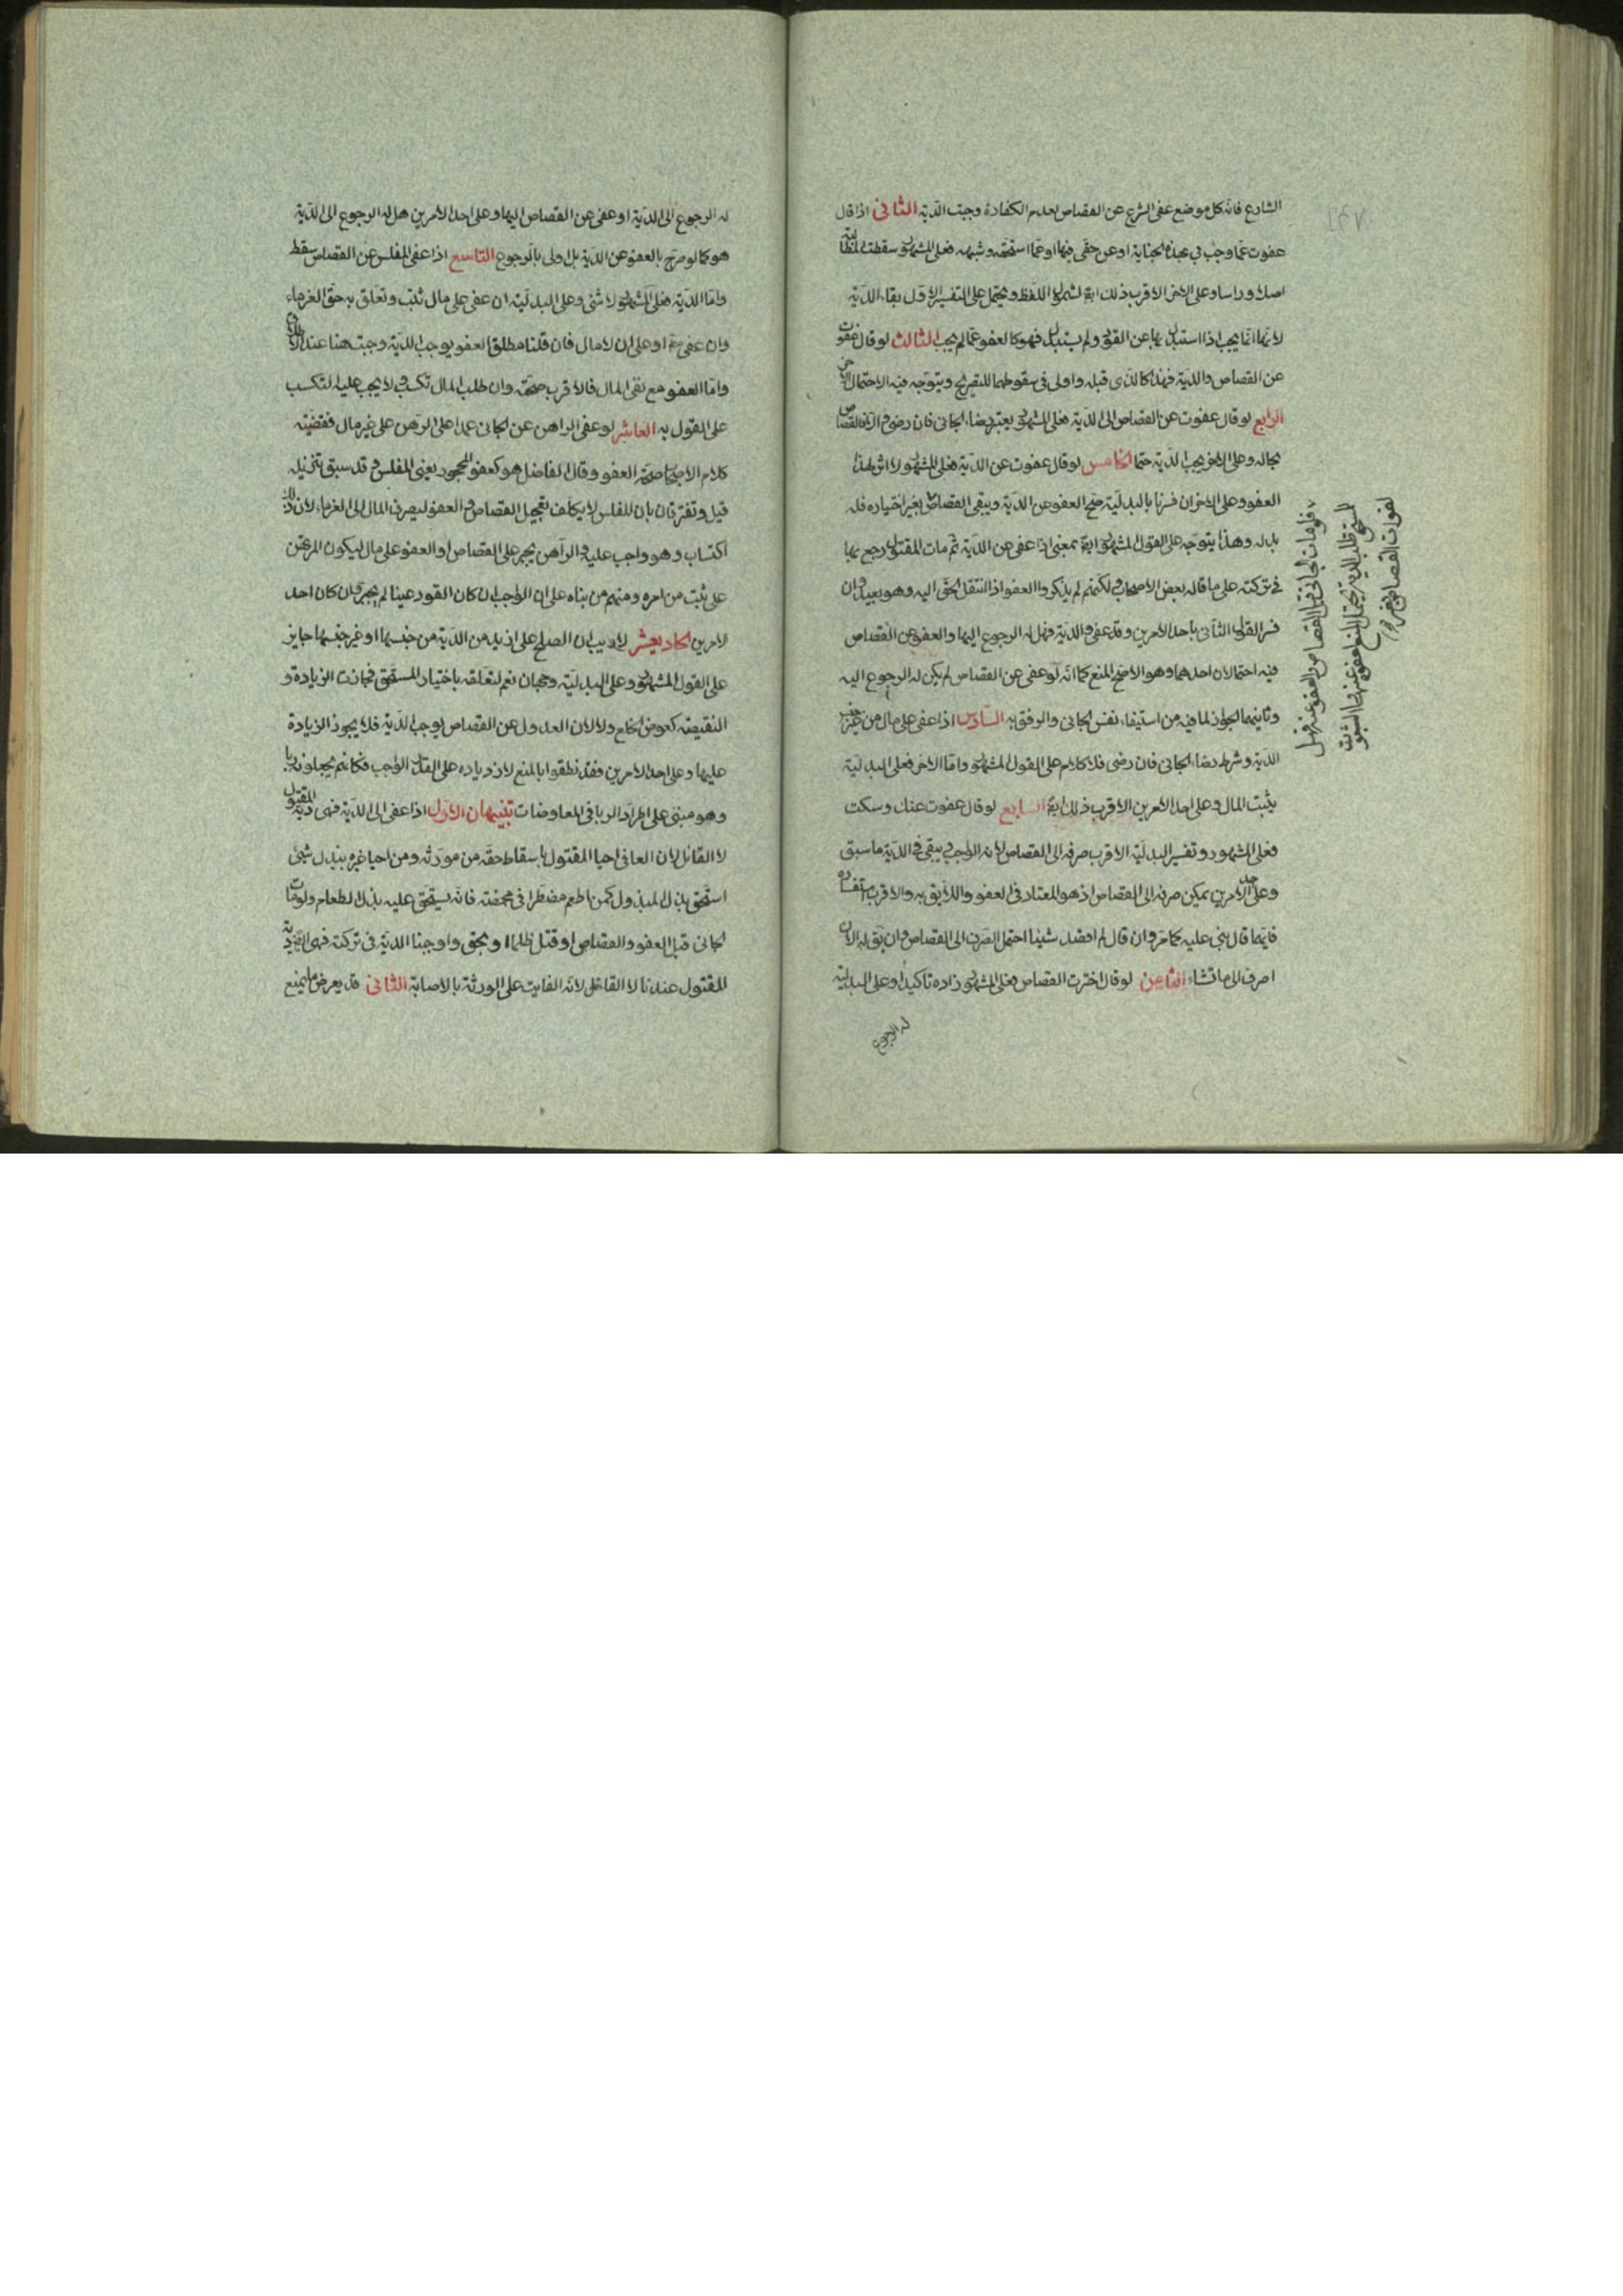 الشارع فانه كل موضع عفى الشرع عن القصاص لعدم الكفاءة وجبت الدية الثانى اذا قال
عفوت عما وجب لى بهذه الجناية او عن حقى فيها او عما استحقه وشبهه فعلى المشهور سقطت المطالبة
اصلا وراسا وعلى الاخر الاقرب ذلك ايضا لشمول اللفظ ويحتمل على التفسير الاول بقاء الدية
لانها انما يجب اذا استبدل بها عن القود ولم يستبدل فهو كالعفو عما لم يجب الثالث لو قال عفوت
عن القصاص والدية فهذا كالذى قبله واولى فى سقوطهما للتصريح ويتوجه فيه الاحتمال
الرابع لو قال عفوت عن القصاص الى الدية فعلى المشهور يعتبر رضاء الجانى فان رضى والا فالقصاص
بحاله وعلى الاخر يجب الدية حتما الخامس لو قال عفوت عن الدية فعلى المشهور لا اثر لهذا
العفو وعلى الاخر ان فسرنا بالبدلية صح العفو عن الدية ويبقى القصاص بغير اختياره فله
بدله وهذا يتوجه على القول المشهور ايضا بمعنى اذا عفى عن الدية ثم مات المقتول رجع بها
فى تركته على ما قاله بعض الاصحاب ولكنهم لم يذكروا العفو اذا انتقل الحق اليه وهو بعيد وان
فسر القول الثانى باحد الامرين وقد عفى والدية فهل له الرجوع اليها والعفو عن القصاص
فيه احتمالان احدهما وهو الاصح المنع كما انه لو عفى عن القصاص لم يكن له الرجوع اليه
وثانيهما الجواز لما فيه من استيفاء نفس الجانى والرفق به السادس اذا عفى على مال من غير جنس
الدية وشرط رضاء الجانى فان رضى فلا كلام على القول المشهور واما الاخر فعلى البدلية
يثبت المال وعلى احد الامرين الاقرب ذلك ايضا السابع لو قال عفوت عنك وسكت
فعلى المشهور وتفسير البدلية الاقرب صرفه الى القصاص لانه الواجب ويبقى فى الدية ما سبق
وعلى احد الامرين يمكن صرفه الى القصاص اذ هو المعتاد فى العفو واللايق به والاقرب استفساره
فايهما قال بنى عليه كما مر وان قال لم اقصد شيئا احتمل الصرف الى القصاص وان يق له الان
اصرف الى ما تشاء الثامن لو قال اخترت القصاص فعلى المشهور زاده تاكيدا وعلى البدلية
له الرجوع
فلو مات الجانى قبل القصاص والعفو عنه فهل
للمستحق طلب الدية يحتمل المنع لعفوه عنها والثبوت
لفوات القصاص بغير
له الرجوع الى الدية او عفى عن القصاص اليها وعلى احد الامرين هل له الرجوع الى الدية
هو كما لو صرح بالعفو عن الدية بل اولى بالرجوع التاسع اذا عفى المفلس عن القصاص سقط
واما الدية فعلى المشهور لا شئ وعلى البدلية ان عفى على مال ثبت وتعلق به حق الغرماء
وان عفى او على ان لا مال فان قلنا مطلق العفو يوجب الدية وجبت هنا عند الاطلاق
واما العفو مع نفى المال فالاقرب صحته وان طلب المال تكسب ولا يجب عليه التكسب
على القول به العاشر لو عفى الراهن عن الجانى عمدا على الرهن على غير مال فقضيته
كلام الاصحاب صحة العفو وقال الفاضل هو كعفو المحجور يعنى المفلس وقد سبق تنزيله
قيل وتفترقان بان المفلس لا يكلف تعجيل القصاص والعفو ليصرف المال الى الغرماء لان ذلك
اكتساب وهو واجب عليه والراهن يجبر على القصاص او العفو على مال ليكون المرتهن
على ثبت من امره ومنهم من بناه على ان الواجب ان كان القود عينا لم يجبر وان كان احد
الامرين الحاديعشر لا ريب ان الصلح على ازيد من الدية من جنسها او غير جنسها جايز
على القول المشهور وعلى البدلية وجهان نعم لتعلقه باختيار المستحق فجازت الزيادة و
النقيصة كعوض الخلع ولا لان العدول عن القصاص يوجب الدية فلا يجوز الزيادة
عليها وعلى احد الامرين فقد نطقوا بالمنع لازدياده على القدر الواجب فكانهم يجعلونه ربا
وهو مبنى على اطراد الربا فى المعاوضات تنبيهان الاول اذا عفى الى الدية فهى دية المقتول
لا القاتل لان العافى احيا المقتول باسقاط حقه من مورثه ومن احيا غيره ببذل شئ
استحق بدل المبذول كمن اطعم مضطرا فى مخمصة فانه يستحق عليه بدل الطعام ولو مات
الجانى قبل العفو والقصاص او قتل ظلما او بحق واوجبنا الدية فى تركته فهى ايضا دية
المقتول عندنا لا القاتل لانه الفايت على الورثة بالاصابة الثانى قد يعرض ما يمنع